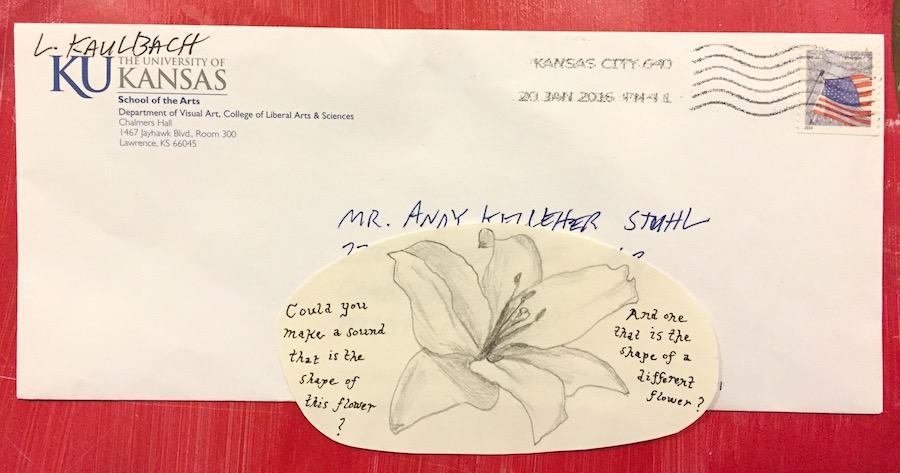 L. KAULBACH
KU THE UNIVERSITY OF
KANSAS
School of the Arts
Department of Visual Art, College of Liberal Arts & Sciences
Chalmers Hall
1467 Jayhawk Blvd., Room 300
Lawrence, KS 66045
KANSAS CITY 640
20 JAN 2016 PM 4 L
MR. ANDY KELLEHER STUHL
Could you
make a sound
that is the
shape of
this flower
?
And one
that is the
shape of a
different
flower?